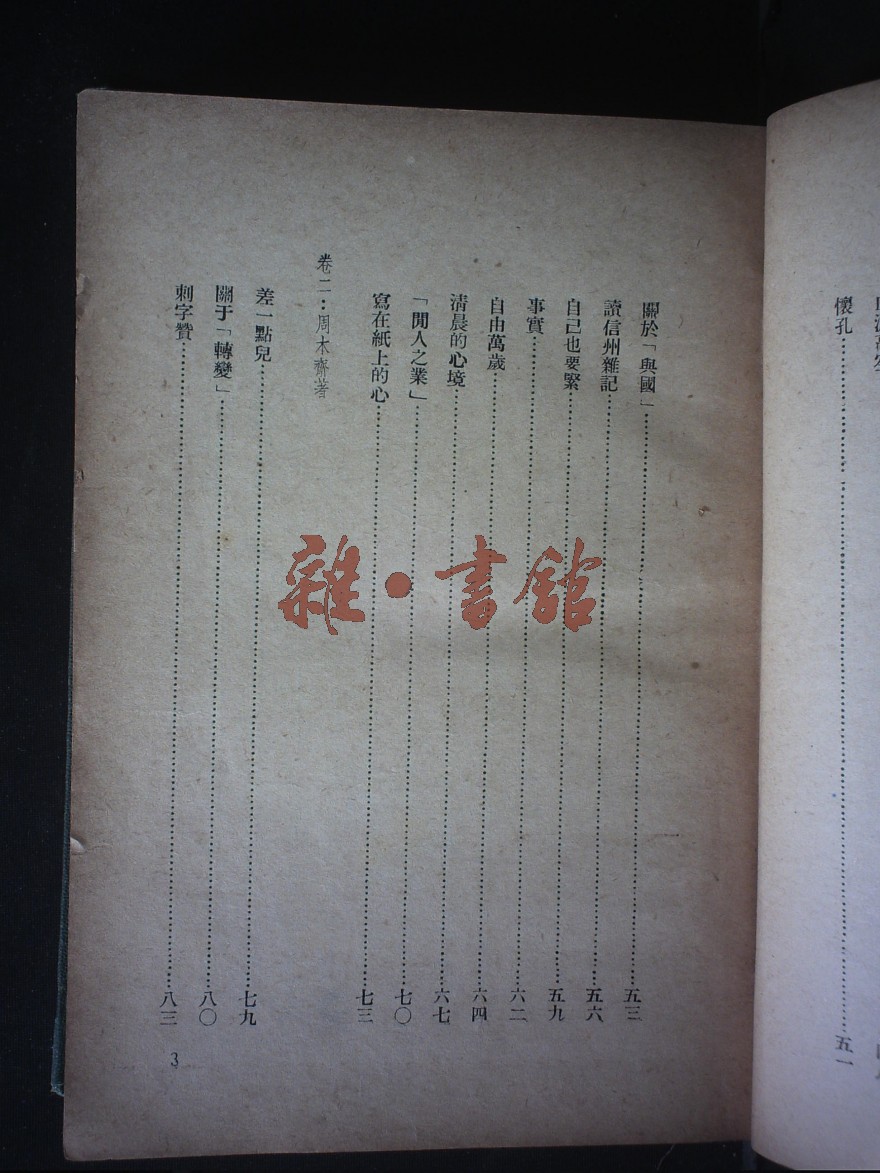 懷孔……五一
關於「與國」……五三
讀信州雜記……五六
自己也要緊……五九
事實……六二
自由萬歲……六四
清晨的心境……六七
「閒人之業」……七〇
寫在紙上的心……七三
卷二：周木齋著
差一點兒……七九
關于「轉變」……八〇
刺字贊……八三
3
雜·書館